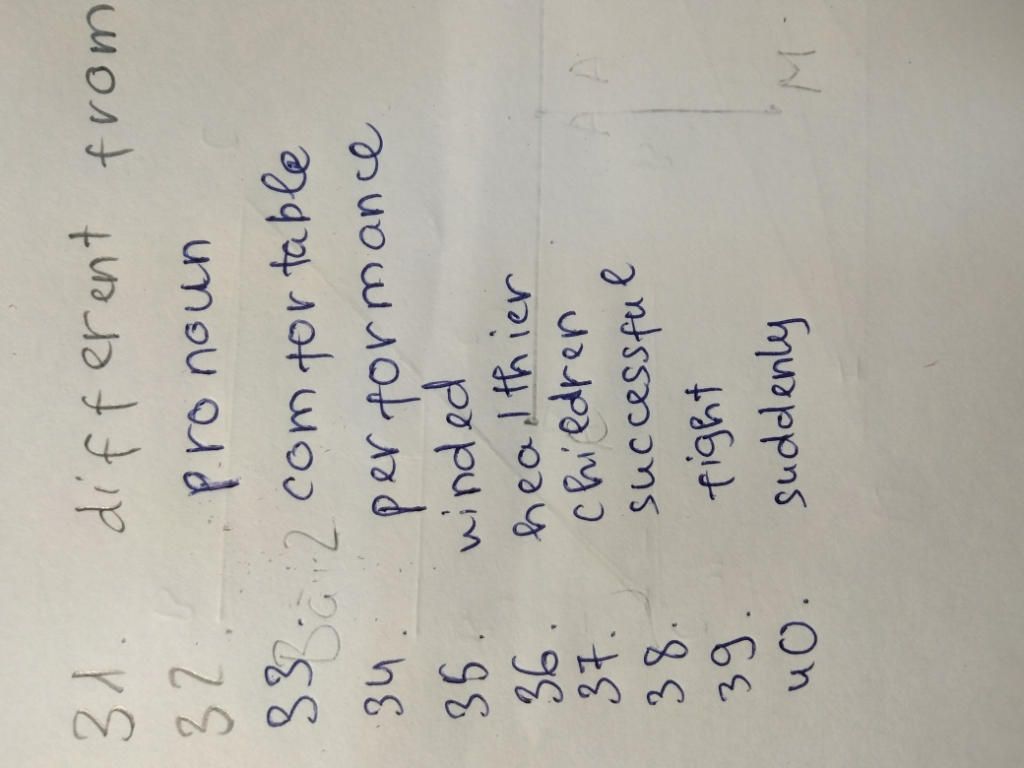 31. different from
32. pronoun
33. comfortable
Bài 2
34. performance
35. winded
36. healthier
37. children
38. successful
39. fight
40. suddenly
A
A
M